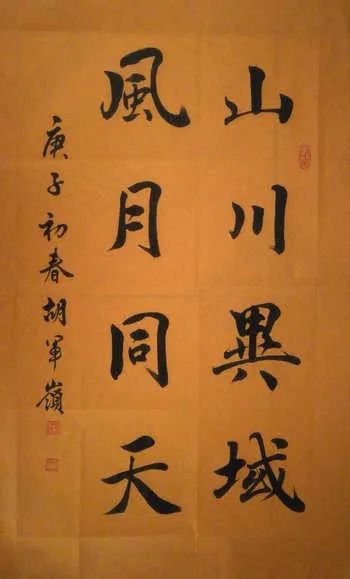 山川異域
風月同天
庚子初春胡軍嶺